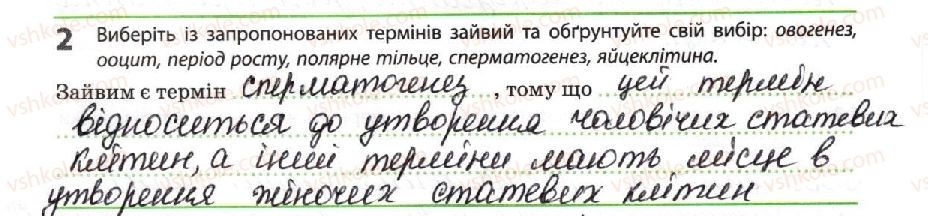 2 Виберіть із запропонованих термінів зайвий та обґрунтуйте свій вибір: овогенез,
ооцит, період росту, полярне тільце, сперматогенез, яйцеклітина.
Зайвим є термін сперматогенез, тому що цей термін
відноситься до утворення чоловічих статевих
клітин, а інші терміни мають місце в
утворення жіночих статевих клітин